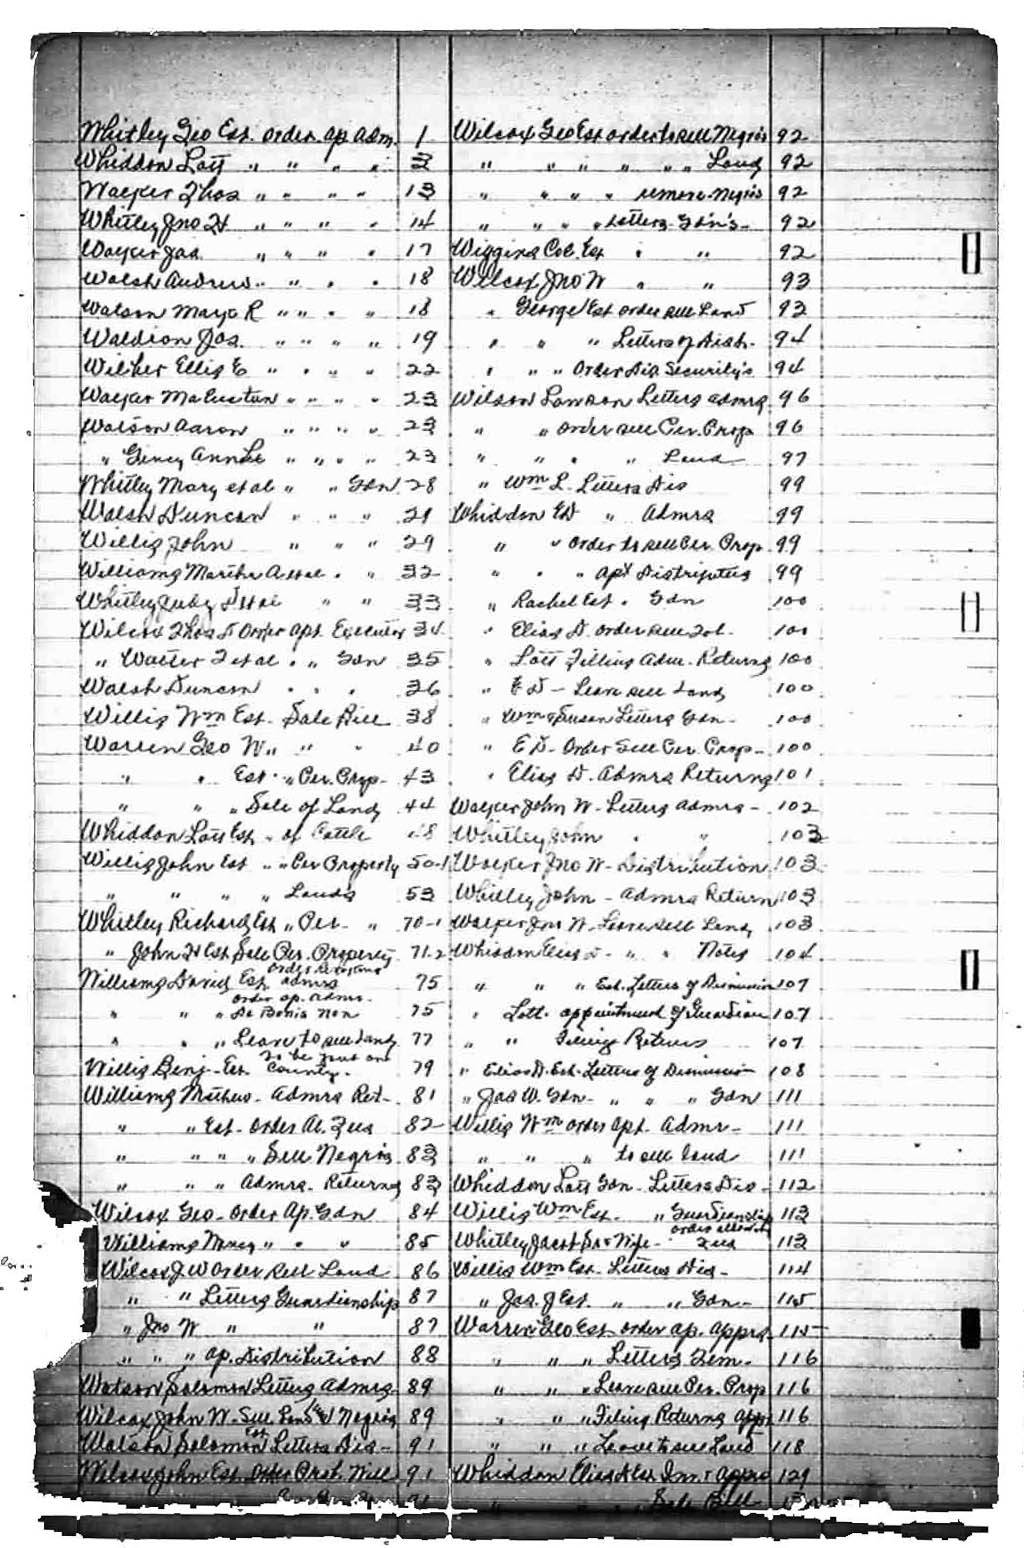 Whitley Geo Est. order. ap adm. 1
Whiddon Lott " " " " 3
Walker Thos " " " " 13
Whitley Jno H " " " " 14
Walker Jas. " " " " 17
Walsh Andrew " " " " 18
Watson Mary R " " " " 18
Waldron Jas. " " " " 19
Wilcher Ellis E " " " " 22
Walker " " " " 23
Watson Aaron " " " " 23
" " " " " 23
Whitley Mary et al " " Gdn 28
Walsh Duncan " " " 29
Willis John " " " 29
Williams Martha A et al " " 32
Whitley et al " " 33
Wilcox Thos order apt. Executor 34
" Walter et al " " Gdn 35
Walsh Duncan " " " 36
Willis Wm Est. Sale Bill 38
Warren Geo W " " " 40
" " Est. " Per. Prop- 43
" " " Sale of Land 44
Whiddon Lott Est " of Cattle
Willis John Est " " Per Property 50-1
" " " " Lands 53
Whitley Richard Est " Per. " 70-1
" John H Est Sale Per. Property 71-2
Williams David Est. admrs 75
order ap. admr.
" " " De Bonis Non 75
" " " Leave to sell Land 77
to be put on
Willis Benj- Est. County. 79
Williams - Admrs Ret- 81
" " Est- order 82
" " " " Sell Negros 83
" " " Admrs. Returns 83
Wilcox Geo- order Ap. Gdn 84
Williams Mary " " " 85
Wilcox J W order sell Land 86
" " Letters Guardianship 87
" Jno W " " 87
" " " ap. Distribution 88
Watson Solomon Letters Admrs- 89
Wilcox John W- Sell Land & Negros 89
Watson Solomon Est Letters Dis- 91
Wilcox John Est Order Prob. Will 91
91
Wilcox Geo Est order to sell Negros 92
" " " " " " Land 92
" " " " remove Negros 92
" " " " Letters- Gdn's- 92
Wiggins Est " " 92
Wilcox Jno W " " 93
" George Est order sell Land 93
" " " Letters of Dish- 94
" " " order Dis Security's 94
Wilson Lawson Letters admrs 96
" " order sell Per. Prop 96
" " " " Land 97
" Wm L. Letters Dis 99
Whiddon ED " Admrs 99
" " order to sell Per. Prop. 99
" " " apt Distributers 99
" Rachel Est. " Gdn 100
" Elias D. order sell 100
" Lott Filling Adm. Returns 100
" E D - Leave sell Land 100
" Wm & Susan Letters Gdn- 100
" E D- Order Sell Per. Prop- 100
" Elias D. Admrs Returns 101
Walker John W- Letters admrs- 102
Whitley John " " 103
Walker Jno W- Distribution 103
Whitley John - Admrs Return 103
Walker Jno W- Leave sell Land 103
Whiddon Elias D- " " Notes 104
" " " Est. Letters of Dismission 107
" Lott- appointment of Guardian 107
" " Filing Returns 107
" Elias D. Est. Letters of Dismission 108
" Jas W. Gdn- " " " Gdn 111
Willis Wm order apt. Admr- 111
" " " to sell land 111
Whiddon Lott Gdn- Letters Dis- 112
Willis Wm Est- " Guardianship 113
Whitley Jacob Sr & Wife- 113
Willis Wm Est- Letters Dis- 114
" Jas. J Est. " " Gdn- 115
Warren Geo Est order ap. apprs 115
" " " Letters Tem- 116
" " " Leave sell Per. Prop 116
" " " Filing Returns appr 116
" " " Leave to sell Land 118
Whiddon Elias Est Inv & Appra 129
" " " Sale Bill